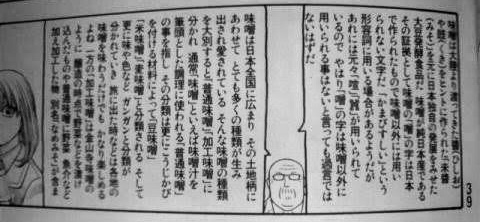 味噌は大陸より渡ってきた醤(ひしお)
や豉(くき)をヒントに作られた「未醤
(みそ)」を元に日本独自の発展をみせた
大豆発酵食品だ 味噌が純日本産である
その証拠として 味噌の「噌」の字は日本
で作られたもので味噌以外には用い
られない文字だ 「かまびすしい」という
形容詞に用いる場合があるようだが
あれには元々「喧」「囂」が用いられて
いるので やはり「噌」の字は味噌以外に
用いられる事はないと言っても過言では
ないはずだ
味噌は日本全国に広まり その土地柄に
あわせて とても多くの種類が生み
出され愛されている そんな味噌の種類
を大別すると「普通味噌」「加工味噌」に
分かれ 通常「味噌」といえば味噌汁を
筆頭とした調理に使われる「普通味噌」
の事を指し その分類は更にこうじかび
を付ける材料によって「豆味噌」
「米味噌」「麦味噌」と分類される そして
更に味や色などで かなり細かく種類が
分かれていき 旅に出た時など各地の
味噌を味わうだけでも かなり楽しめる
よね 一方の「加工味噌」は金山寺味噌の
ように 醸造の時点で野菜などを漬け
込んだものや普通味噌に野菜 魚介など
加え加工した物 別名「なめみそ」が含ま
39